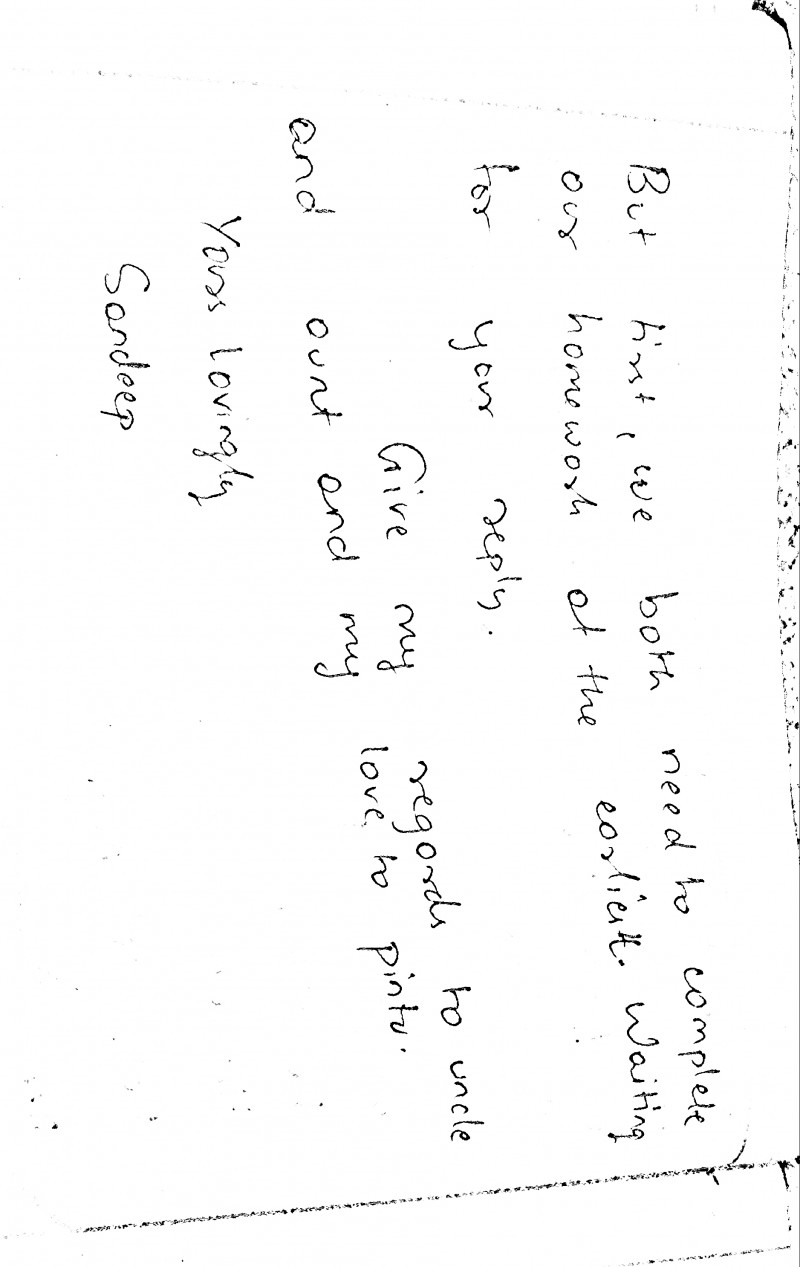 But first, we both need to complete
our homework at the earliest. Waiting
for your reply.
Give my regards to uncle
and aunt and my love to pintu.
Yours lovingly
Sandeep